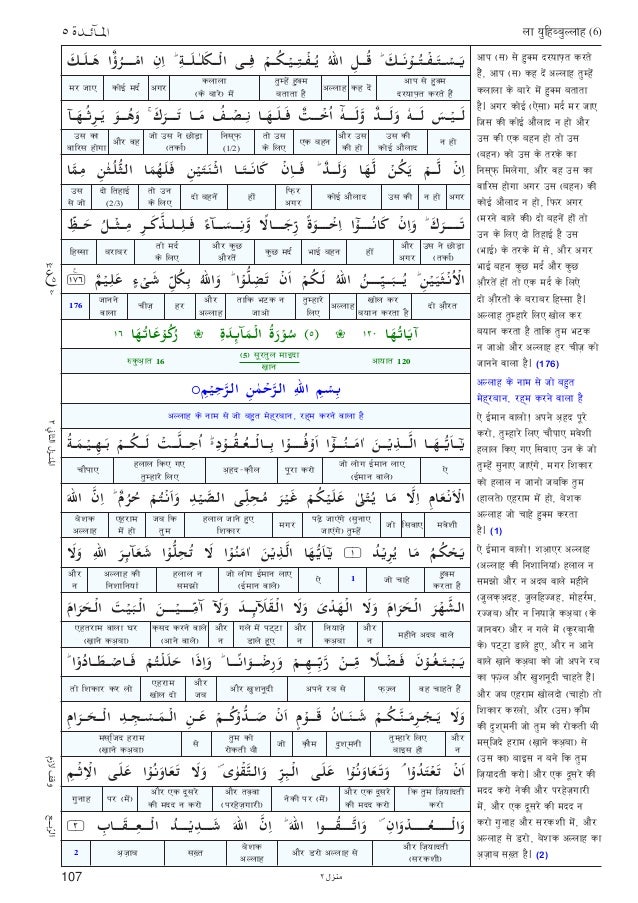 المآئدة ٥
ला युहिब्बुल्लाह (6)
يَسْتَفْتُوْنَكَ ؕ قُلِ اللّٰهُ يُفْتِيْكُمْ فِى الْكَلٰلَةِ ؕ اِنِ امْرُؤٌا هَلَكَ
आप से हुक्म दरयाफ़्त करते हैं | कह दें | अल्लाह | तुम्हें हुक्म बताता है | कलाला (के बारे) में | अगर | कोई मर्द | मर जाए
لَيْسَ لَهٗ وَلَدٌ وَّلَهٗۤ اُخْتٌ فَلَهَا نِصْفُ مَا تَرَكَ ۚ وَهُوَ يَرِثُهَاۤ
न हो | उस की कोई औलाद | और उस की हो | एक बहन | तो उस के लिए | निस्फ़ (1/2) | जो उस ने छोड़ा (तर्का) | और वह | उस का वारिस होगा
اِنْ لَّمْ يَكُنْ لَّهَا وَلَدٌ ؕ فَاِنْ كَانَتَا اثْنَتَيْنِ فَلَهُمَا الثُّلُثٰنِ مِمَّا
अगर | न हो | उस की | कोई औलाद | फिर अगर | हों | दो बहनें | तो उन के लिए | दो तिहाई (2/3) | उस से जो
تَرَكَ ؕ وَاِنْ كَانُوْۤا اِخْوَةً رِّجَالًا وَّنِسَآءً فَلِلذَّكَرِ مِثْلُ حَظِّ
उस ने छोड़ा (तर्का) | और अगर | हों | भाई बहन | कुछ मर्द | और कुछ औरतें | तो मर्द के लिए | बराबर | हिस्सा
الْاُنْثَيَيْنِ ؕ يُبَيِّنُ اللّٰهُ لَكُمْ اَنْ تَضِلُّوْا ؕ وَاللّٰهُ بِكُلِّ شَىْءٍ عَلِيْمٌ ١٧٦
दो औरत | खोल कर बयान करता है | अल्लाह | तुम्हारे लिए | ताकि भटक न जाओ | और अल्लाह | हर | चीज़ | जानने वाला | 176
اٰيَاتُهَا ١٢٠ ❀ (٥) سُوْرَةُ الْمَآئِدَةِ ❀ رُكُوْعَاتُهَا ١٦
आयात 120 | (5) सूरतुल माइदा ख़ान | रुकुआत 16
بِسْمِ اللّٰهِ الرَّحْمٰنِ الرَّحِيْمِ ○
अल्लाह के नाम से जो बहुत मेहरबान, रहम करने वाला है
يٰۤاَيُّهَا الَّذِيْنَ اٰمَنُوْۤا اَوْفُوْا بِالْعُقُوْدِ ؕ اُحِلَّتْ لَكُمْ بَهِيْمَةُ
ऐ | जो लोग ईमान लाए (ईमान वाले) | पूरा करो | अहद-कौल | हलाल किए गए तुम्हारे लिए | चौपाए
الْاَنْعَامِ اِلَّا مَا يُتْلٰى عَلَيْكُمْ غَيْرَ مُحِلِّى الصَّيْدِ وَاَنْتُمْ حُرُمٌ ؕ اِنَّ اللّٰهَ
मवेशी | सिवाए | जो | पढ़े जाएंगे (सुनाए जाएंगे) तुम्हें | मगर | हलाल जाने हुए शिकार | जब कि तुम | एहराम में हो | बेशक अल्लाह
يَحْكُمُ مَا يُرِيْدُ ١ يٰۤاَيُّهَا الَّذِيْنَ اٰمَنُوْا لَا تُحِلُّوْا شَعَآئِرَ اللّٰهِ وَلَا
हुक्म करता है | जो चाहे | 1 | ऐ | जो लोग ईमान लाए (ईमान वाले) | हलाल न समझो | अल्लाह की निशानियां | और न
الشَّهْرَ الْحَرَامَ وَلَا الْهَدْىَ وَلَا الْقَلَآئِدَ وَلَاۤ آٰمِّيْنَ الْبَيْتَ الْحَرَامَ
महीने अदब वाले | और न | नियाज़े कअबा | और न | गले में पट्टा डाले हुए | और न | क़सद करने वाले (आने वाले) | एहतराम वाला घर (ख़ाने कअबा)
يَبْتَغُوْنَ فَضْلًا مِّنْ رَّبِّهِمْ وَرِضْوَانًا ؕ وَاِذَا حَلَلْتُمْ فَاصْطَادُوْا ؕ
वह चाहते हैं | फ़ज़्ल | अपने रब से | और खुशनूदी | और जब | एहराम खोल दो | तो शिकार कर लो
وَلَا يَجْرِمَنَّكُمْ شَنَاٰنُ قَوْمٍ اَنْ صَدُّوْكُمْ عَنِ الْمَسْجِدِ الْحَرَامِ
और न | तुम्हारे लिए बाइस हो | दुश्मनी | क़ौम | जो | तुम को रोकती थी | से | मस्जिद हराम (ख़ाने कअबा)
اَنْ تَعْتَدُوْا ۘ وَتَعَاوَنُوْا عَلَى الْبِرِّ وَالتَّقْوٰى ۪ وَلَا تَعَاوَنُوْا عَلَى الْاِثْمِ
कि तुम ज़ियादती करो | और एक दूसरे की मदद करो | नेकी पर (में) | और तक़्वा (परहेज़गारी) | और एक दूसरे की मदद न करो | पर (में) | गुनाह
وَالْعُدْوَانِ ۪ وَاتَّقُوا اللّٰهَ ؕ اِنَّ اللّٰهَ شَدِيْدُ الْعِقَابِ ٢
और ज़ियादती (सरकशी) | और डरो अल्लाह से | बेशक अल्लाह | सख़्त | अज़ाब | 2
आप (स) से हुक्म दरयाफ़्त करते
हैं, आप (स) कह दें अल्लाह तुम्हें
कलाला के बारे में हुक्म बताता
है। अगर कोई (ऐसा) मर्द मर जाए
जिस की कोई औलाद न हो और
उस की एक बहन हो तो उस
(बहन) को उस के तरके का
निसफ़ मिलेगा, और वह उस का
वारिस होगा अगर उस (बहन) की
कोई औलाद न हो, फिर अगर
(मरने वाले की) दो बहनें हों तो
उन के लिए दो तिहाई है उस
(भाई) के तरके में से, और अगर
भाई बहन कुछ मर्द और कुछ
औरतें हों तो एक मर्द के लिऐ
दो औरतों के बराबर हिस्सा है।
अल्लाह तुम्हारे लिए खोल कर
बयान करता है ताकि तुम भटक
न जाओ और अल्लाह हर चीज़ को
जानने वाला है। (176)
अल्लाह के नाम से जो बहुत
मेहरबान, रहम करने वाला है
ऐ ईमान वालो! अपने अहद पूरे
करो, तुम्हारे लिए चौपाए मवेशी
हलाल किए गए सिवाए उन के जो
तुम्हें सुनाए जाएंगे, मगर शिकार
को हलाल न जानो जबकि तुम
(हालते) एहराम में हो, बेशक
अल्लाह जो चाहे हुक्म करता
है। (1)
ऐ ईमान वालो! शआएर अल्लाह
(अल्लाह की निशानियां) हलाल न
समझो और न अदब वाले महीने
(जुलक़अदह, जुलहिज्जह, मोहर्रम,
रज्जब) और न नियाज़े कअबा (के
जानवर) और न गले में (कुरबानी
के) पट्टा डाले हुए, और न आने
वाले ख़ाने कअबा को जो अपने रब
का फ़ज़्ल और खुशनूदी चाहते हैं।
और जब एहराम खोलदो (चाहो) तो
शिकार करलो, और (उस) क़ौम
की दुश्मनी जो तुम को रोकती थी
मसजिदे हराम (ख़ाने कअबा) से
(उस का) बाइस न बने कि तुम
ज़ियादती करो। और एक दूसरे की
मदद करो नेकी और परहेज़गारी
में, और एक दूसरे की मदद न
करो गुनाह और सरकशी में, और
अल्लाह से डरो, बेशक अल्लाह का
अज़ाब सख़्त है। (2)
107
منزل ٢